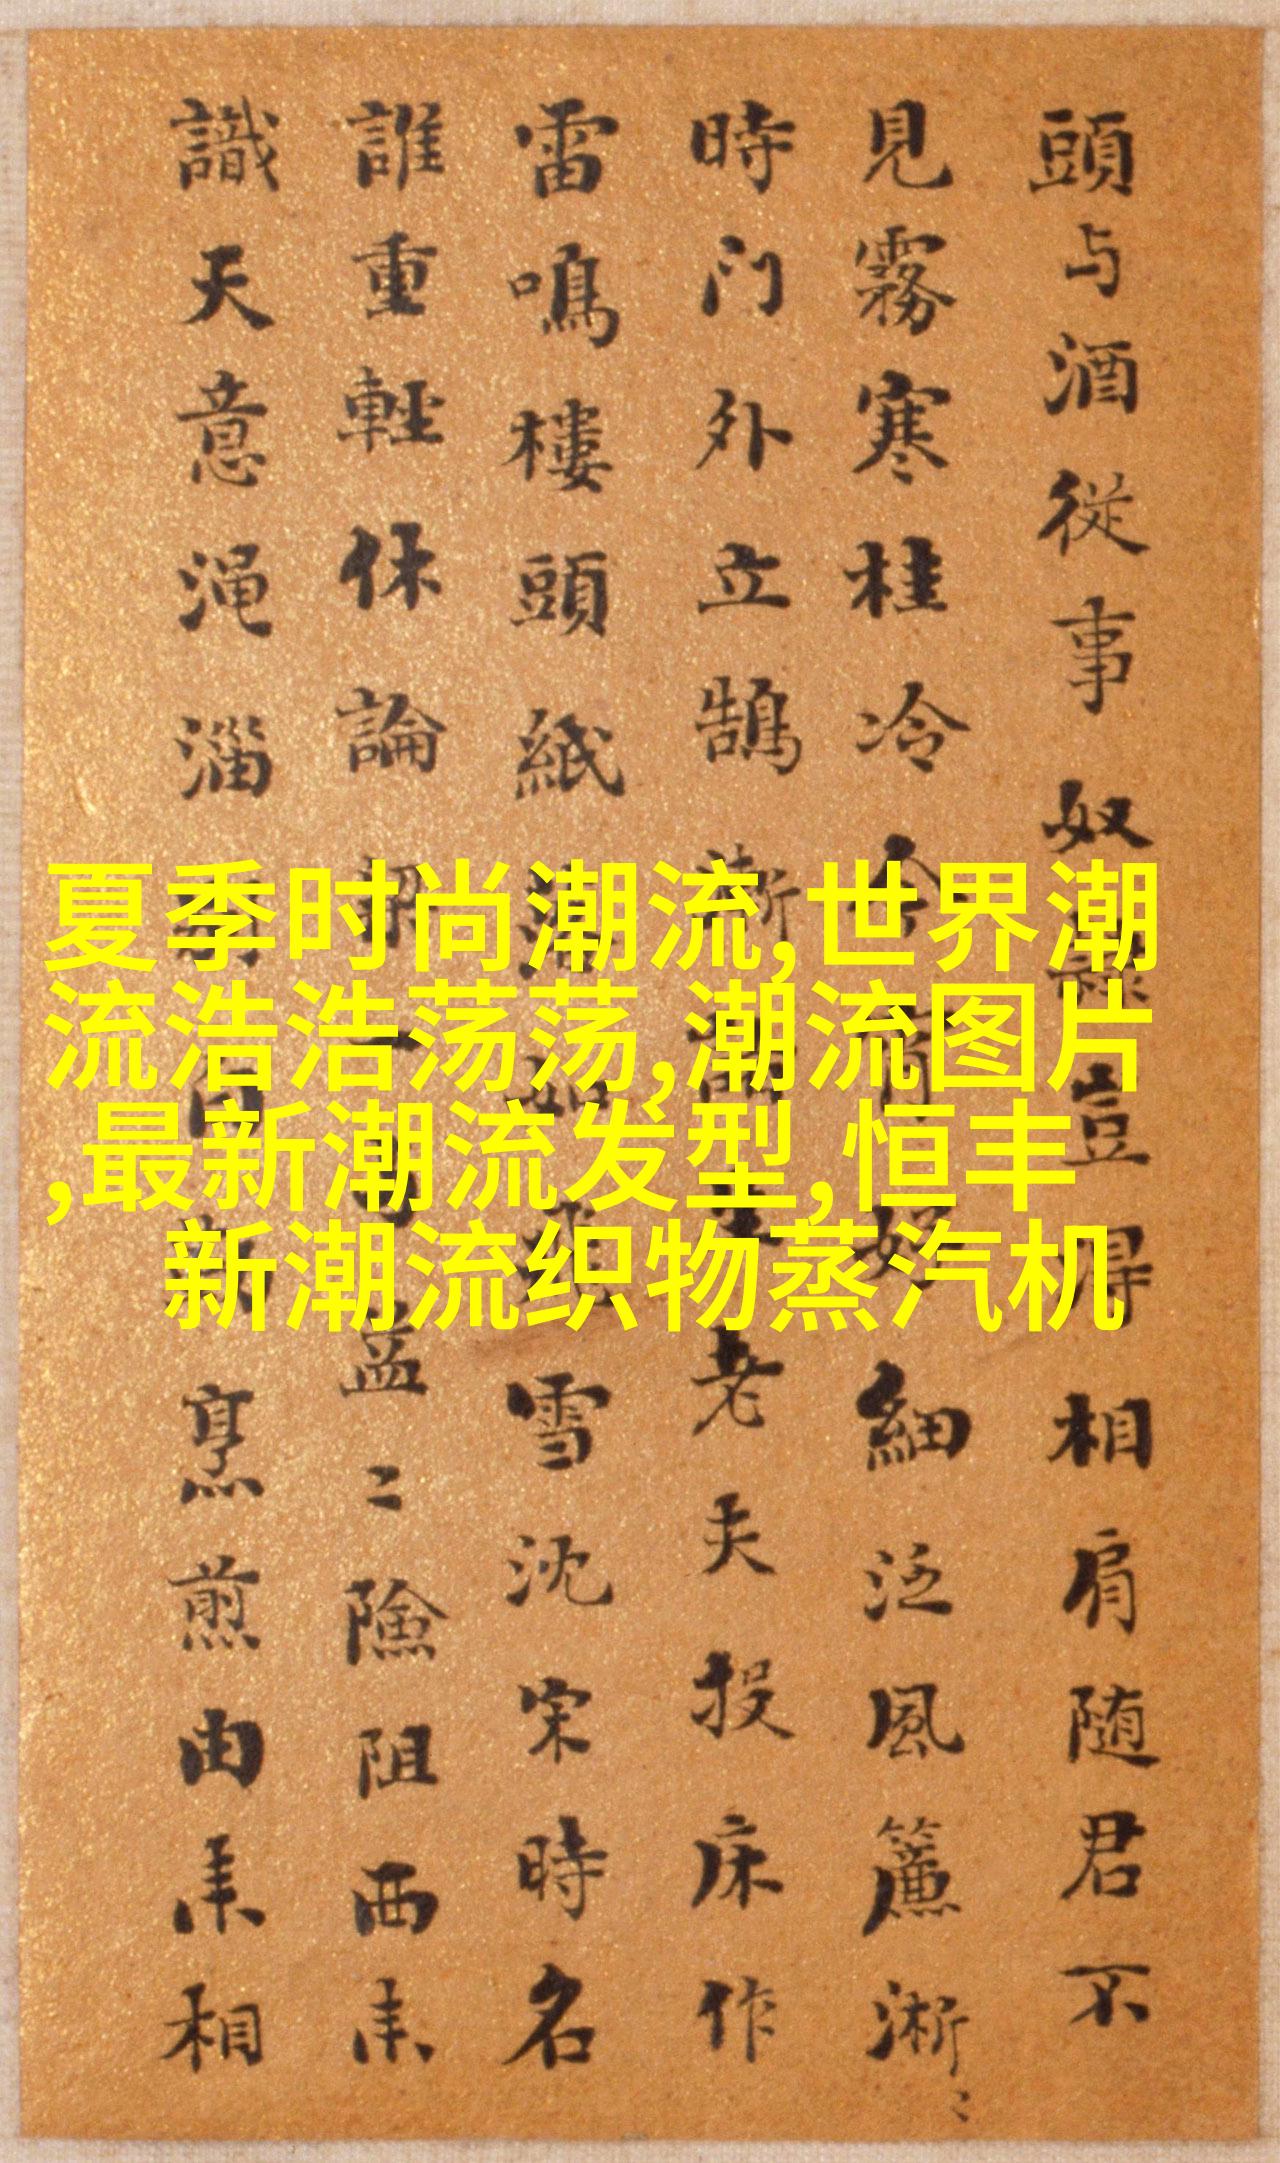 頭与酒從事奴隸豈得相肩随君不
見霧寒桂冷 細泛風簾淅〻
時门外立鵠 老夫投床作
雷鳴樓頭紙落 雪沈宋時名
誰重輕休論 孟〻險阻西来
識天意渑淄 烹煎由来相
夏季时尚潮流,世界潮
流浩浩荡荡,潮流图片
,最新潮流发型,恒丰
新潮流织物蒸汽机